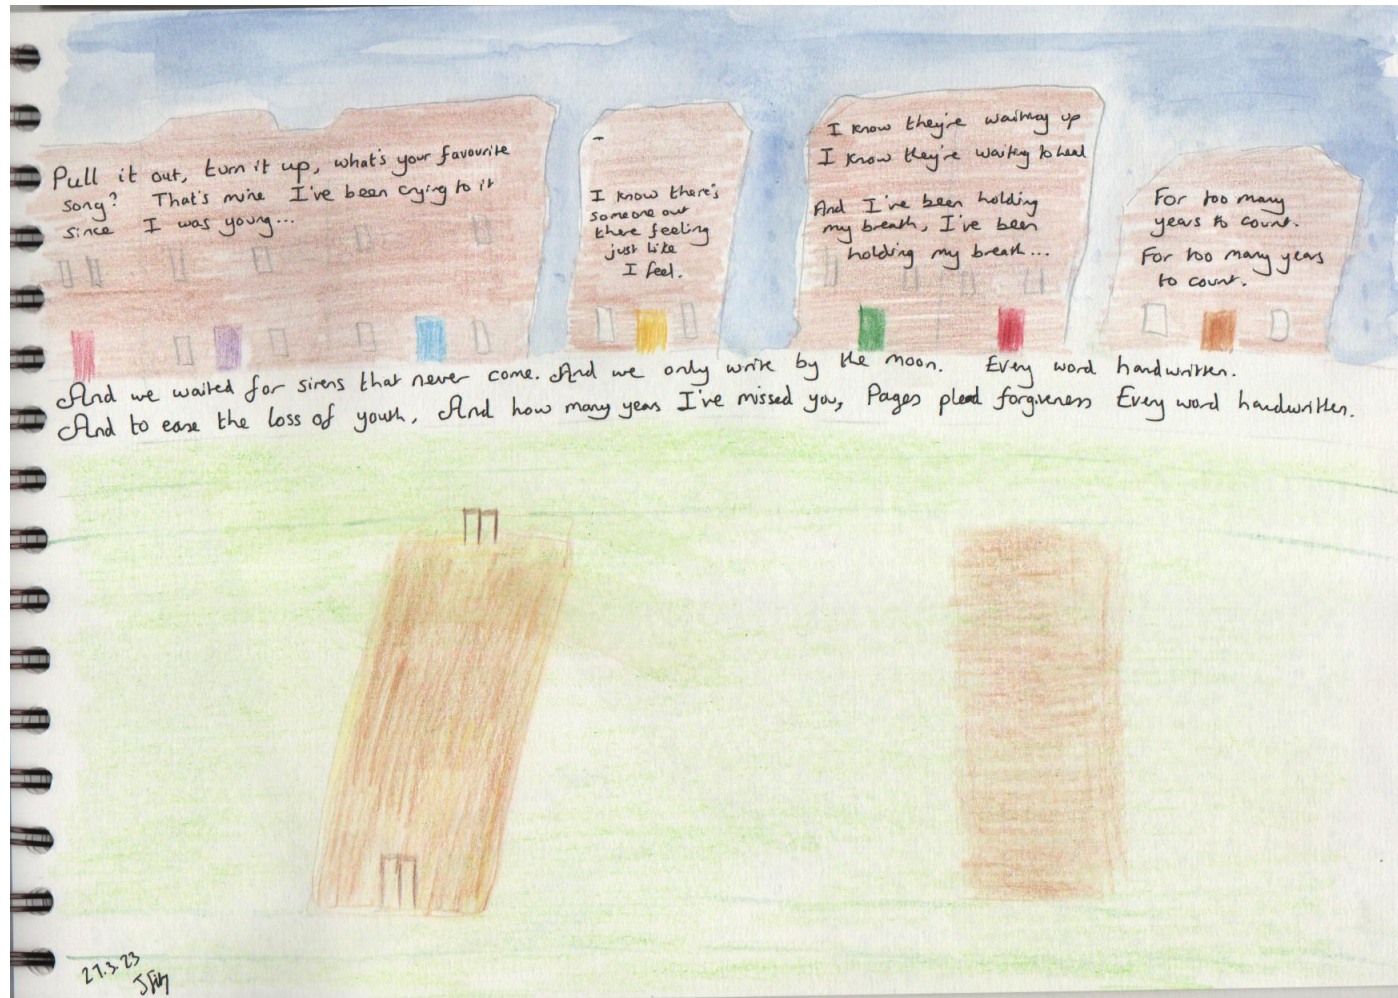 Pull it out, turn it up, what's your favourite
song? That's mine I've been crying to it
since I was young...
I know there's
someone out
there feeling
just like
I feel.
I know they're waiting up
I know they're waiting to heal
And I've been holding
my breath, I've been
holding my breath...
For too many
years to count.
For too many years
to count.
And we waited for sirens that never come. And we only write by the moon. Every word handwritten.
And to ease the loss of youth, And how many years I've missed you, Pages plead forgiveness Every word handwritten.
27.3.23